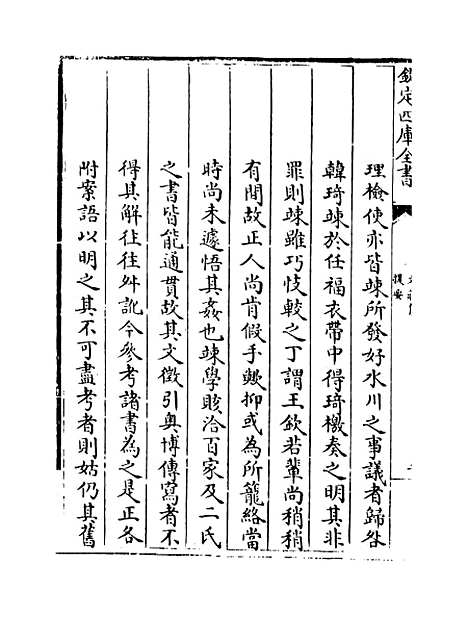 欽定四庫全書
提要
理檢使亦皆竦所發好水川之事議者歸咎
韓琦竦於任福衣帶中得琦檄奏之明其非
罪則竦雖巧忮較之丁謂王欽若輩尚稍稍
有間故正人尚肯假手歟抑或為所籠絡當
時尚未遽悟其姦也竦學賅洽百家及二氏
之書皆能通貫故其文徵引奥博傳寫者不
得其解往往舛訛今參考諸書為之是正各
附案語以明之其不可盡考者則姑仍其舊